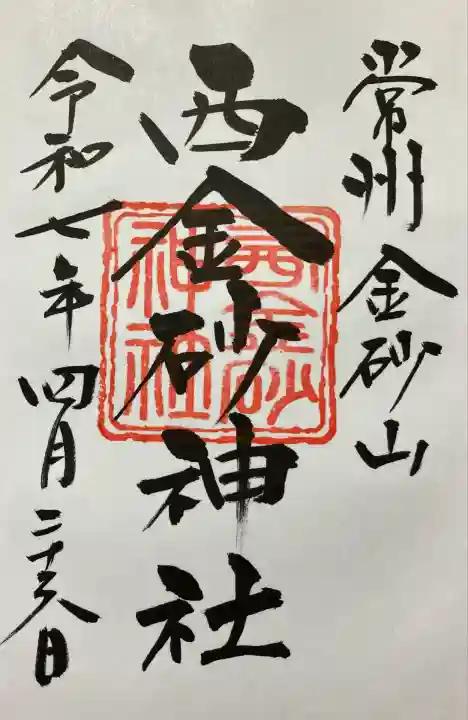 常州 金砂山
西金砂神社
西金砂神社
令和七年 四月 二十六日